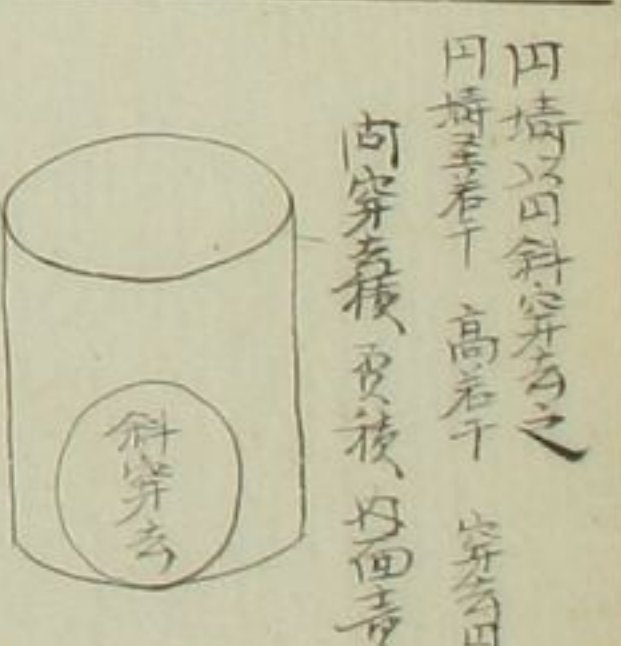 円壔以円斜穿去之
円壔径若干 高若干 穿去円
問穿去積 及積 内面青
斜穿去